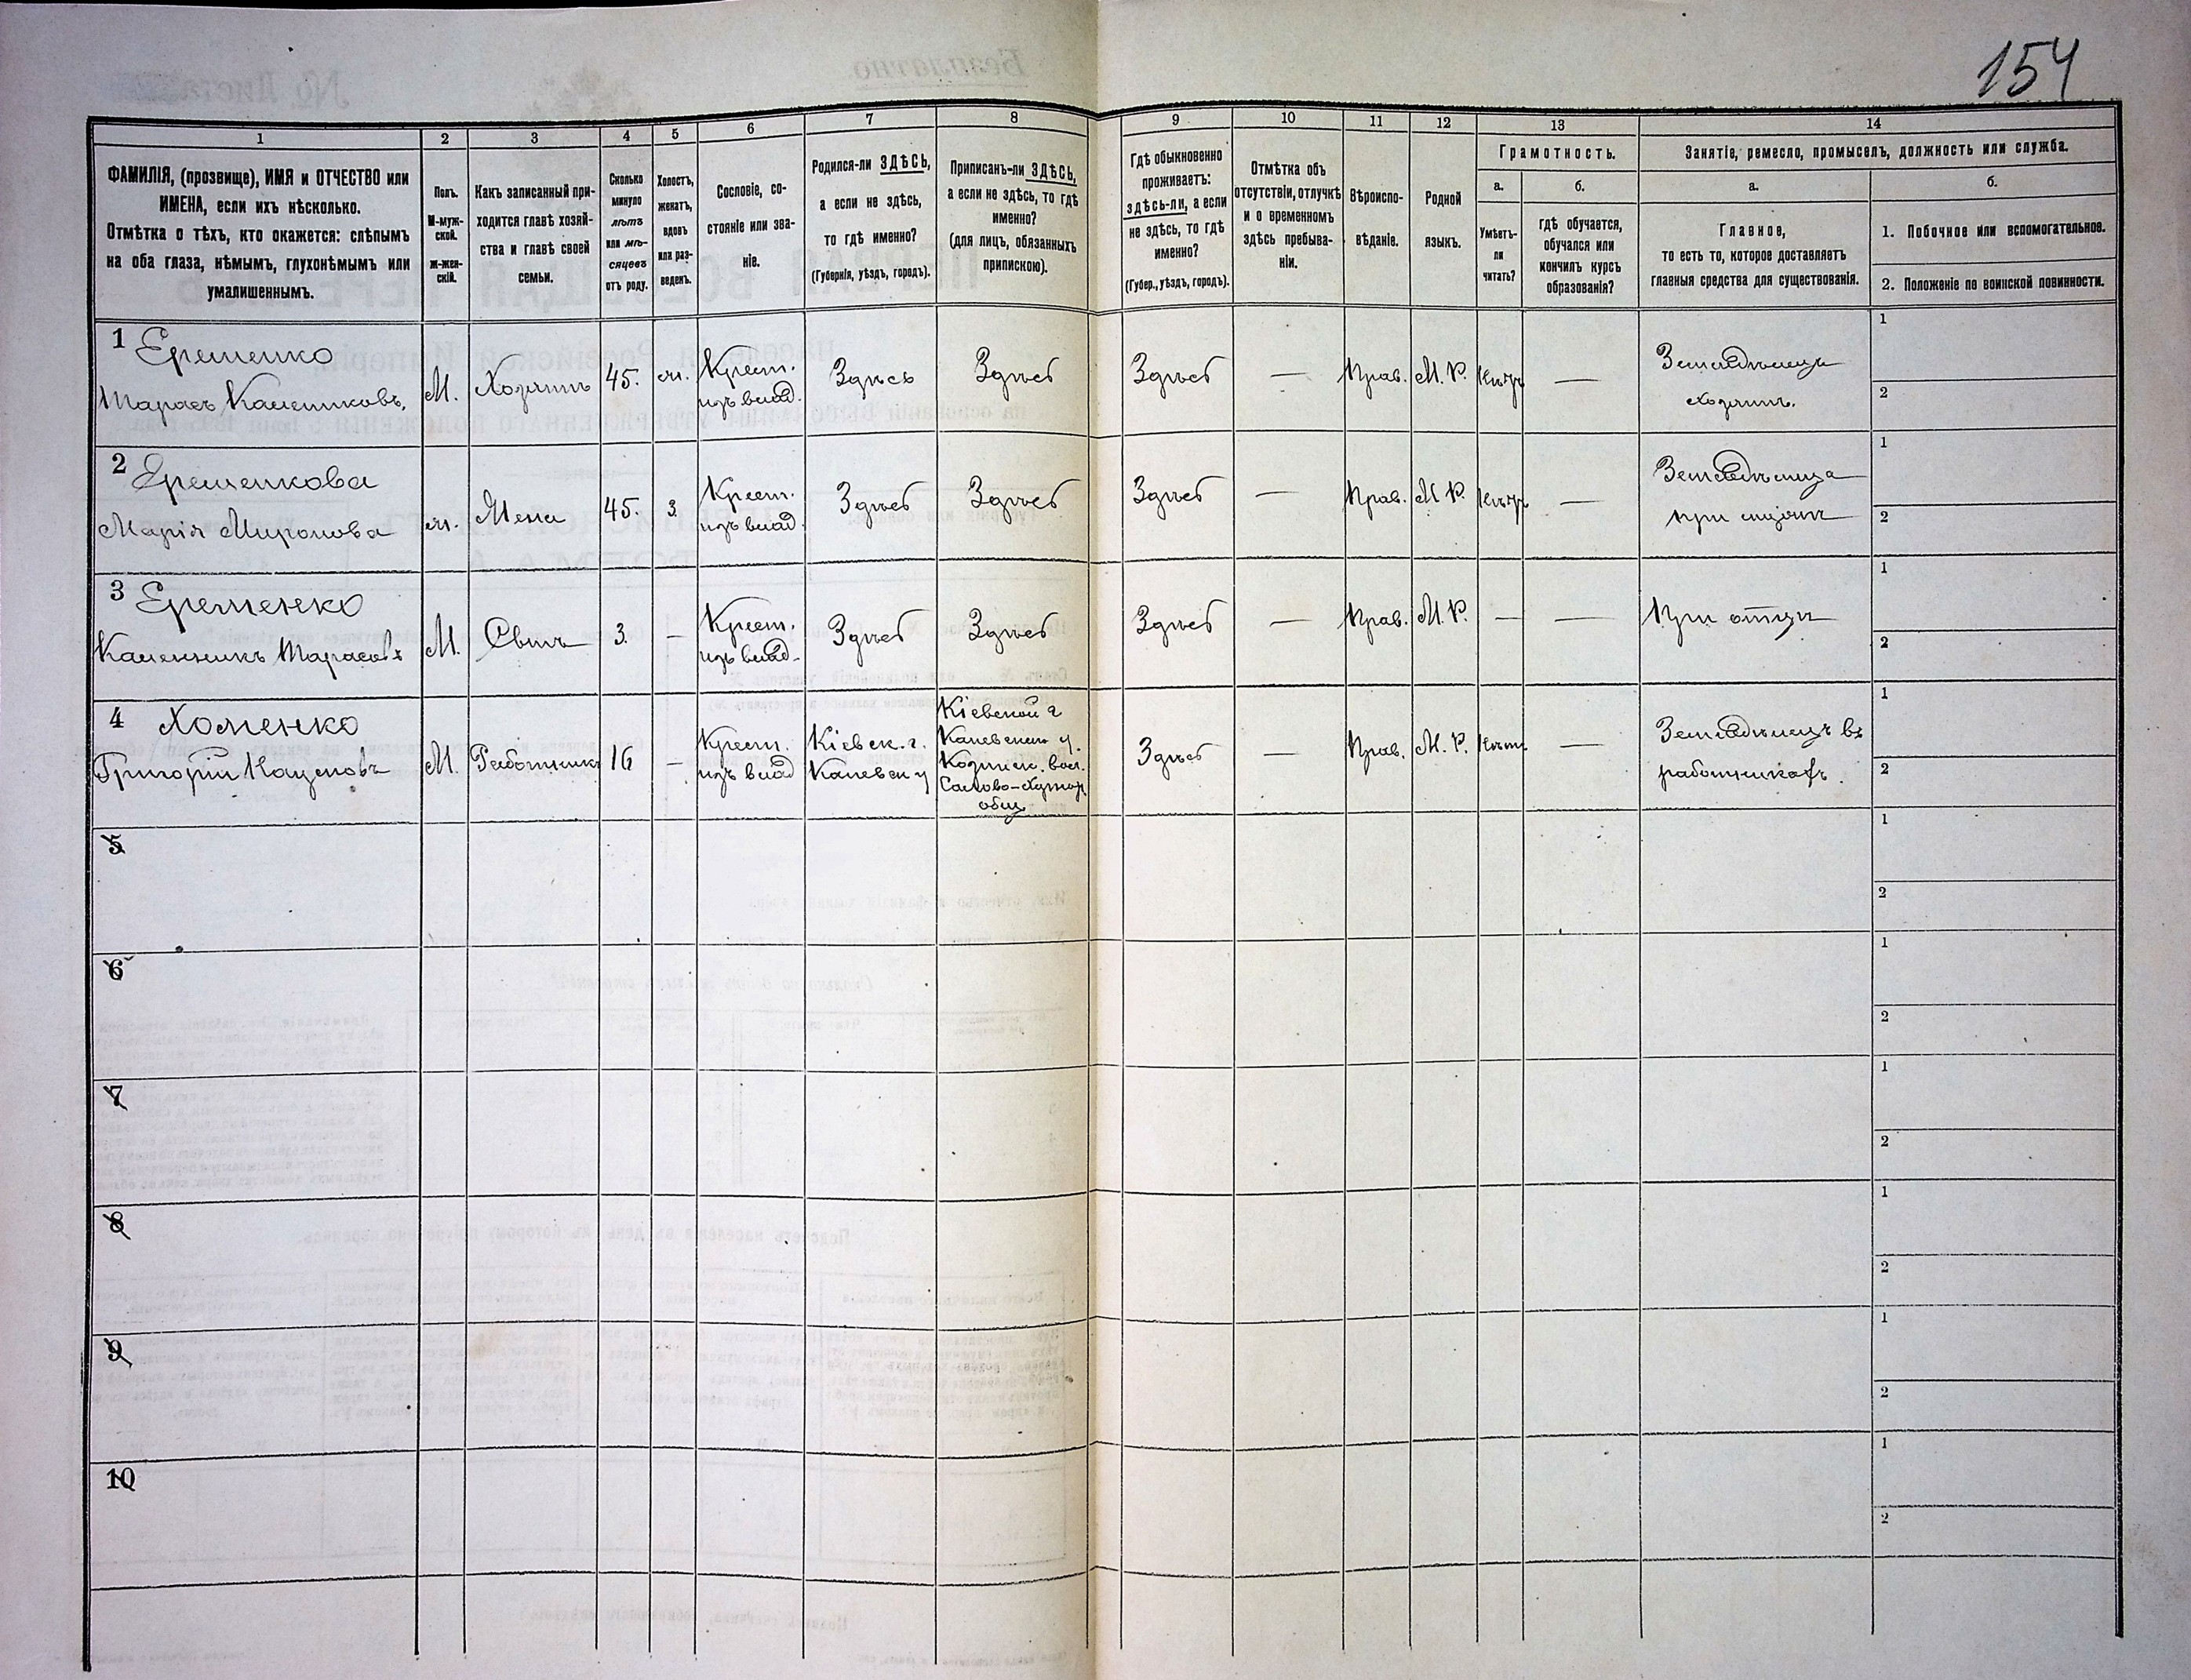 154
1
2
3
4
5
6
7
8
9
10
11
12
13
14
ФАМИЛІЯ, (прозвище), ИМЯ и ОТЧЕСТВО или
ИМЕНА, если ихъ нѣсколько.
Отмѣтка о тѣхъ, кто окажется: слѣпымъ
на оба глаза, нѣмымъ, глухонѣмымъ или
умалишеннымъ.
Полъ.
М-муж-
ской.
Ж-жен-
скій.
Какъ записанный при-
ходится главѣ хозяй-
ства и главѣ своей
семьи.
Сколько
минуло
лѣтъ
или мѣ-
сяцевъ
отъ роду.
Холостъ,
женатъ,
вдовъ
или раз-
веденъ.
Сословіе, со-
стояніе или зва-
ніе.
Родился-ли ЗДѢСЬ,
а если не здѣсь,
то гдѣ именно?
(Губернія, уѣздъ, городъ).
Приписанъ-ли ЗДѢСЬ,
а если не здѣсь, то гдѣ
именно?
(для лицъ, обязанныхъ
припискою).
Гдѣ обыкновенно
проживаетъ:
здѣсь-ли, а если
не здѣсь, то гдѣ
именно?
(Губер., уѣздъ, городъ).
Отмѣтка объ
отсутствіи, отлучкѣ
и о временномъ
здѣсь пребыва-
ніи.
Вѣроиспо-
вѣданіе.
Родной
языкъ.
Грамотность.
а.
б.
Умѣетъ-
ли
читать?
гдѣ обучается,
обучался или
кончилъ курсъ
образованія?
Занятіе, ремесло, промыселъ, должность или служба.
а.
б.
Главное,
то есть то, которое доставляетъ
главныя средства для существованія.
1. Побочное или вспомогательное.
2. Положеніе по воинской повинности.
1 Еременко
Тарасъ Калениковъ, М. Хозяинъ 45. ж. Крест. изъ влад. Здѣсь Здѣсь Здѣсь — Прав. М. Р. Нѣтъ — Земледѣлецъ
хозяинъ.
1
2
2 Еременкова
Марія Миронова ж. Жена 45. з. Крест. изъ влад. Здѣсь Здѣсь Здѣсь — Прав. М. Р. Нѣтъ — Земледѣлица
при
1
2
3 Еременко
Каленикъ Тарасовъ М. Сынъ 3. — Крест. изъ влад. Здѣсь Здѣсь Здѣсь — Прав. М. Р. — — При отцѣ
1
2
4 Хоменко
Григорій Наумовъ М. Работникъ 16 — Крест. изъ влад Кіевск. г. Каневск у
Кіевской г
Каневскаго у.
Козинск. вол.
Садово-Хутор.
общ.
Здѣсь — Прав. М. Р. Нѣтъ — Земледѣлецъ въ
работникахъ.
1
2
5
1
2
6
1
2
7
1
2
8
1
2
9
1
2
10
1
2